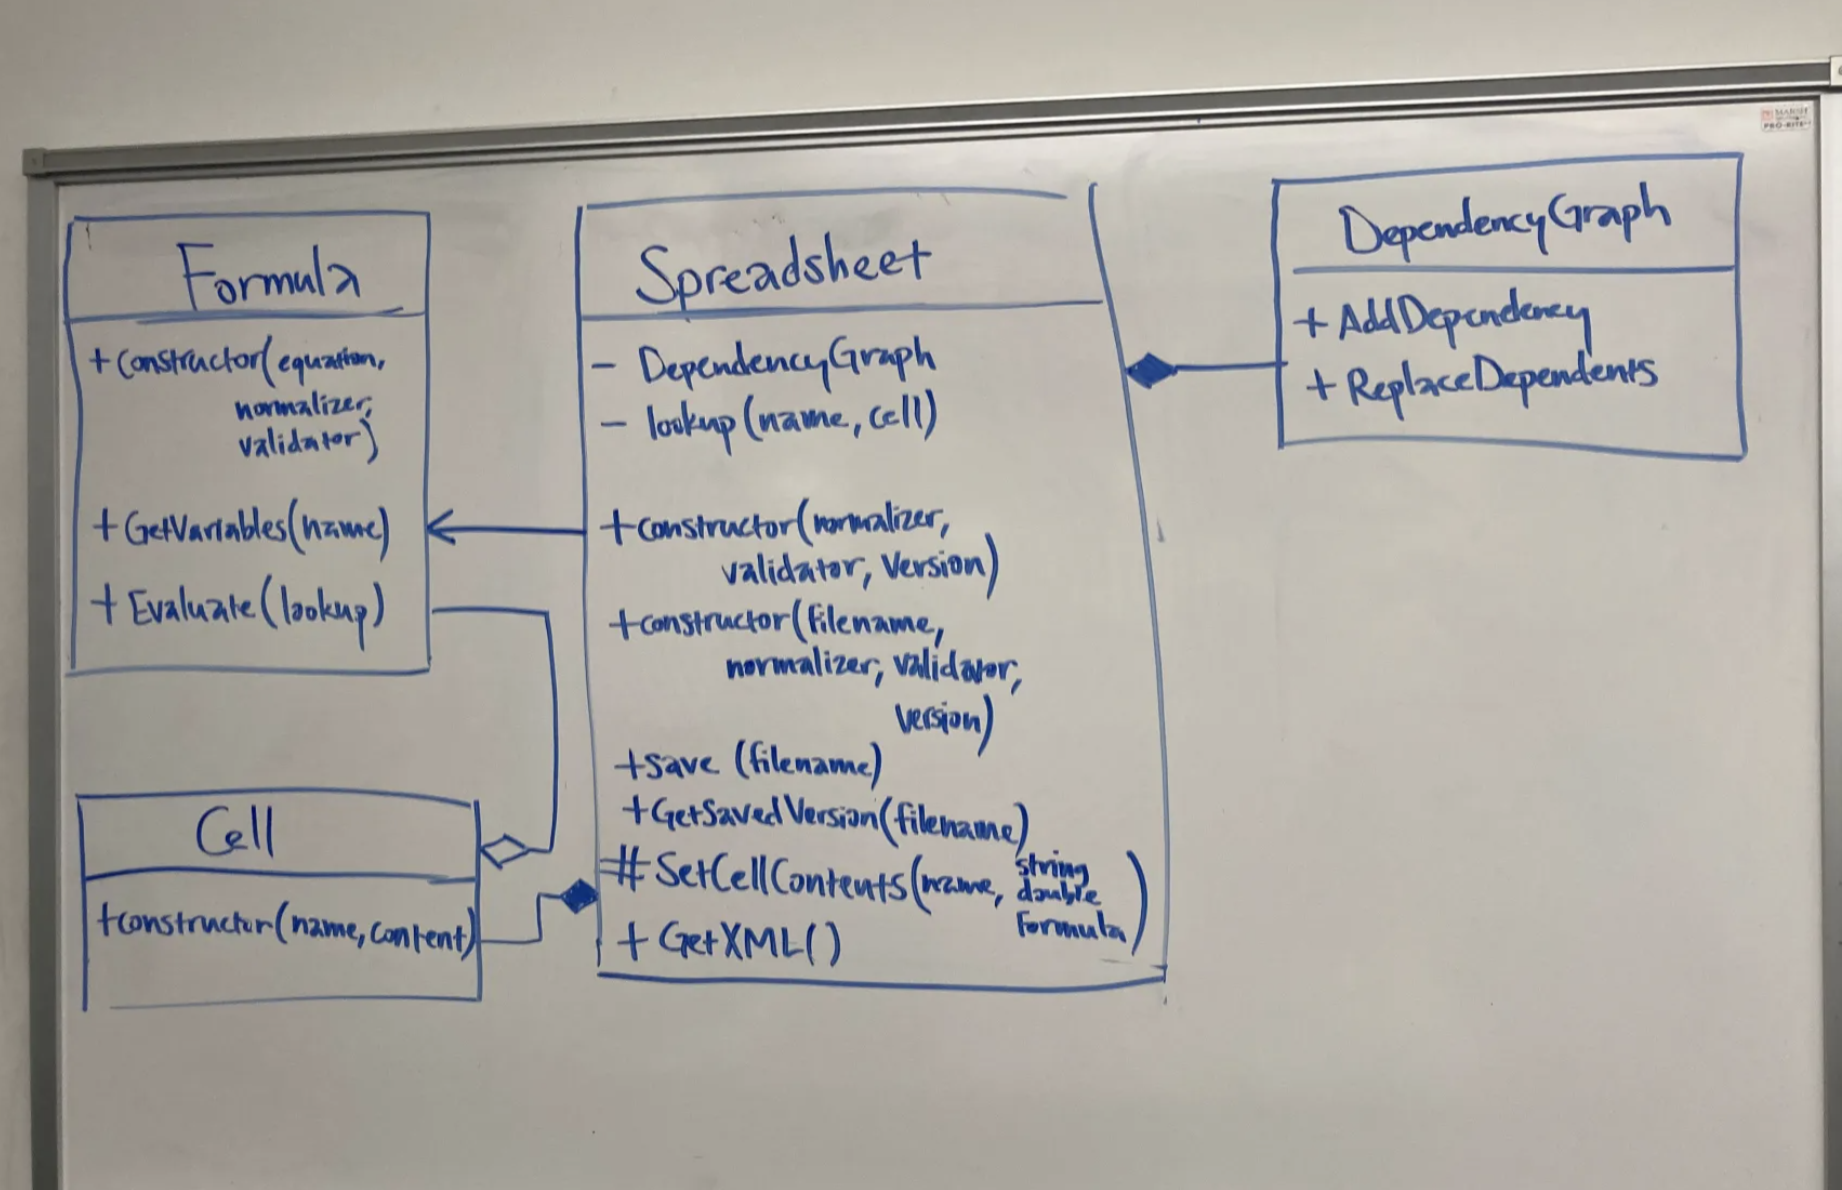 Formula
+ constructor(equation,
normalizer,
validator)
+ GetVariables(name)
+ Evaluate(lookup)
Cell
+constructor(name,content)
Spreadsheet
- DependencyGraph
- lookup(name, cell)
+constructor(normalizer,
validator, Version)
+constructor(filename,
normalizer, validator,
version)
+save (filename)
+GetSavedVersion(filename)
# SetCellContents(name, string
double
Formula)
+ GetXML()
DependencyGraph
+ AddDependency
+ ReplaceDependents